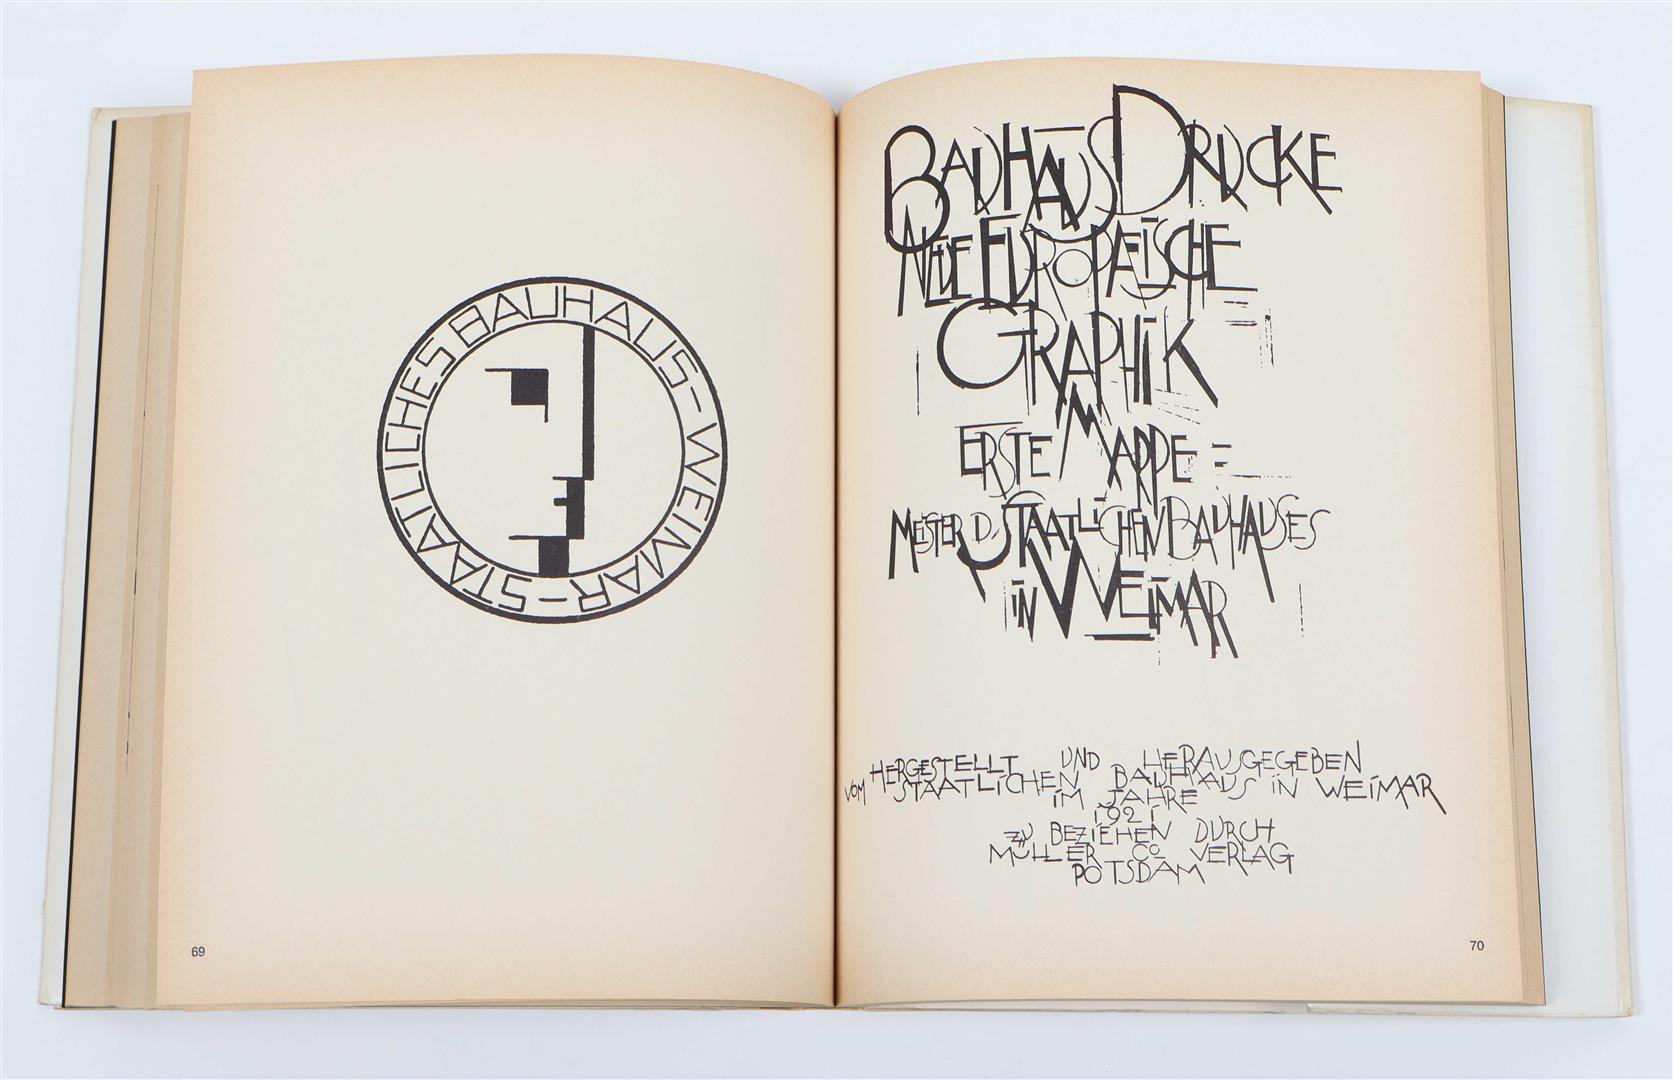 STAATLICHES BAUHAUS–WEIMAR–
69
BAUHAUS DRUCKE
NEUE EUROPAEISCHE
GRAPHIK
ERSTE MAPPE
MEISTER D. STAATLICHEN BAUHAUSES
IN WEIMAR
HERGESTELLT UND HERAUSGEGEBEN
VOM STAATLICHEN BAUHAUS IN WEIMAR
IM JAHRE
1921
ZU BEZIEHEN DURCH
MÜLLER CO VERLAG
POTSDAM
70